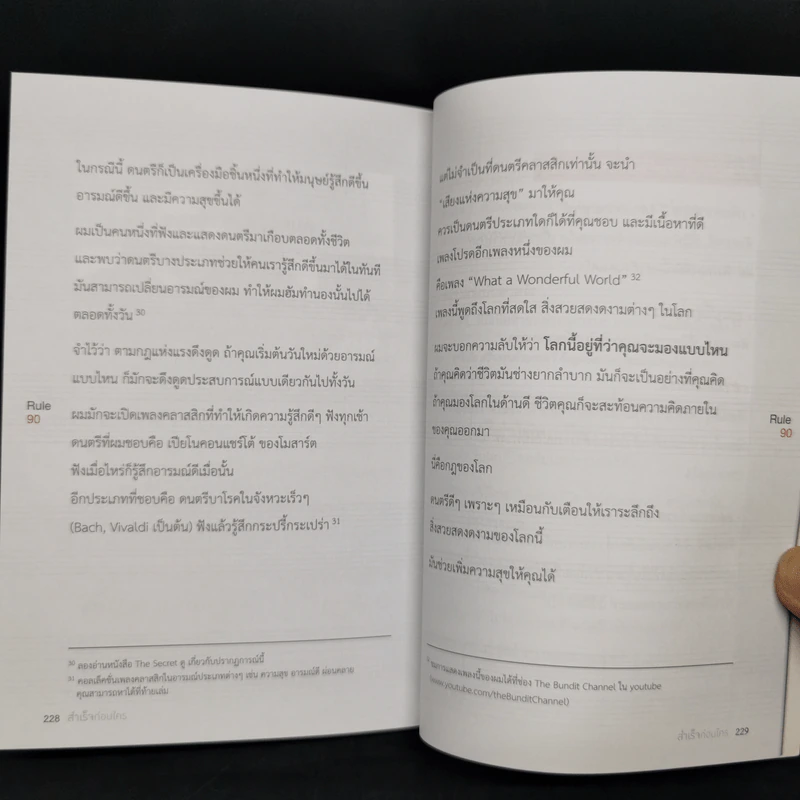 ในกรณีนี้ ดนตรีก็เป็นเครื่องมือชิ้นหนึ่งที่ทำให้มนุษย์รู้สึกดีขึ้น
อารมณ์ดีขึ้น และมีความสุขขึ้นได้
ผมเป็นคนหนึ่งที่ฟังและแสดงดนตรีมาเกือบตลอดทั้งชีวิต
และพบว่าดนตรีบางประเภทช่วยให้คนเรารู้สึกดีขึ้นมาได้ในทันที
มันสามารถเปลี่ยนอารมณ์ของผม ทำให้ผมฮัมทำนองนั้นไปได้
ตลอดทั้งวัน 30
จำไว้ว่า ตามกฎแห่งแรงดึงดูด ถ้าคุณเริ่มต้นวันใหม่ด้วยอารมณ์
แบบไหน ก็มักจะดึงดูดประสบการณ์แบบเดียวกันไปทั้งวัน
Rule
90
ผมมักจะเปิดเพลงคลาสสิกที่ทำให้เกิดความรู้สึกดีๆ ฟังทุกเช้า
ดนตรีที่ผมชอบคือ เปียโนคอนแชร์โต้ ของโมสาร์ต
ฟังเมื่อไหร่ก็รู้สึกอารมณ์ดีเมื่อนั้น
อีกประเภทที่ชอบคือ ดนตรีบาโรคในจังหวะเร็วๆ
(Bach, Vivaldi เป็นต้น) ฟังแล้วรู้สึกกระปรี้กระเปร่า 31
30 ลองอ่านหนังสือ The Secret ดู เกี่ยวกับปรากฏการณ์นี้
31 คอลเล็คชั่นเพลงคลาสสิกในอารมณ์ประเภทต่างๆ เช่น ความสุข อารมณ์ดี ผ่อนคลาย
คุณสามารถหาได้ที่ท้ายเล่ม
228 สำเร็จก่อนใคร
แต่ไม่จำเป็นที่ดนตรีคลาสสิกเท่านั้น จะนำ
“เสียงแห่งความสุข” มาให้คุณ
ควรเป็นดนตรีประเภทใดก็ได้ที่คุณชอบ และมีเนื้อหาที่ดี
เพลงโปรดอีกเพลงหนึ่งของผม
คือเพลง “What a Wonderful World” 32
เพลงนี้พูดถึงโลกที่สดใส สิ่งสวยสดงดงามต่างๆ ในโลก
ผมจะบอกความลับให้ว่า โลกนี้อยู่ที่ว่าคุณจะมองแบบไหน
ถ้าคุณคิดว่าชีวิตมันช่างยากลำบาก มันก็จะเป็นอย่างที่คุณคิด
ถ้าคุณมองโลกในด้านดี ชีวิตคุณก็จะสะท้อนความคิดภายใน
ของคุณออกมา
Rule
90
นี่คือกฎของโลก
ดนตรีดีๆ เพราะๆ เหมือนกับเตือนให้เราระลึกถึง
สิ่งสวยสดงดงามของโลกนี้
มันช่วยเพิ่มความสุขให้คุณได้
การแสดงเพลงนี้ของผมได้ที่ช่อง The Bundit Channel ใน youtube
(www.youtube.com/theBunditChannel)
สำเร็จก่อนใคร 229